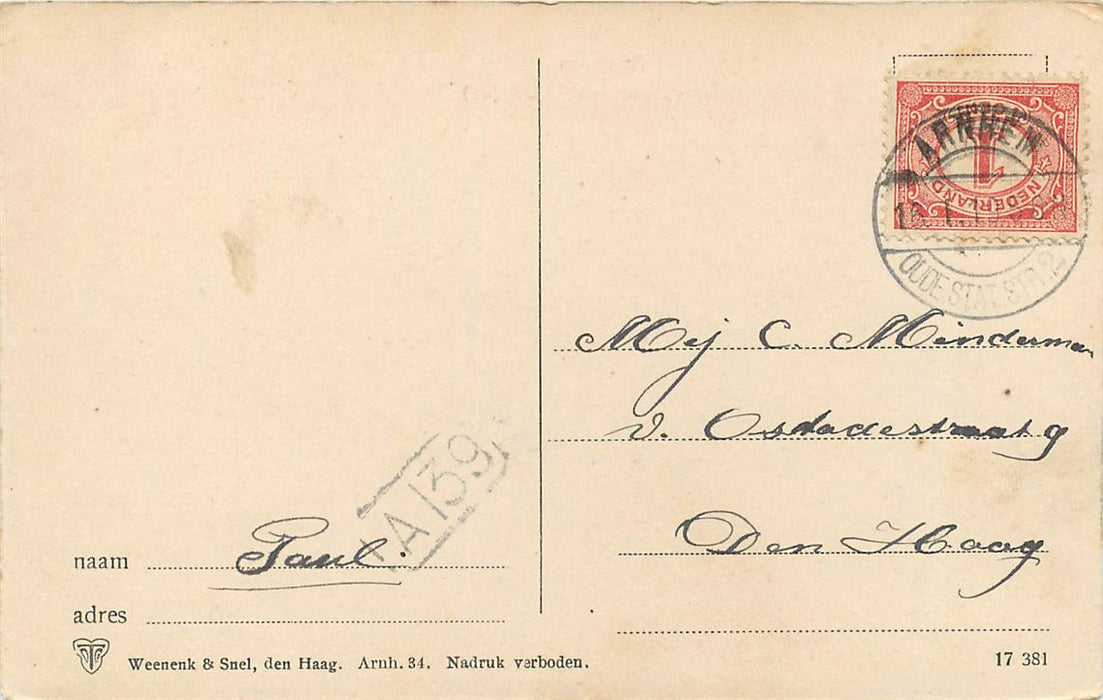 ARNHEM
OUDE STAT. STR. 2
NEDERLAND
1
Mej C. Minderman
v. Ostadestraat 9
Den Haag
A139
naam Paul.
adres
Weenenk & Snel, den Haag. Arnh. 34. Nadruk verboden.
17 381